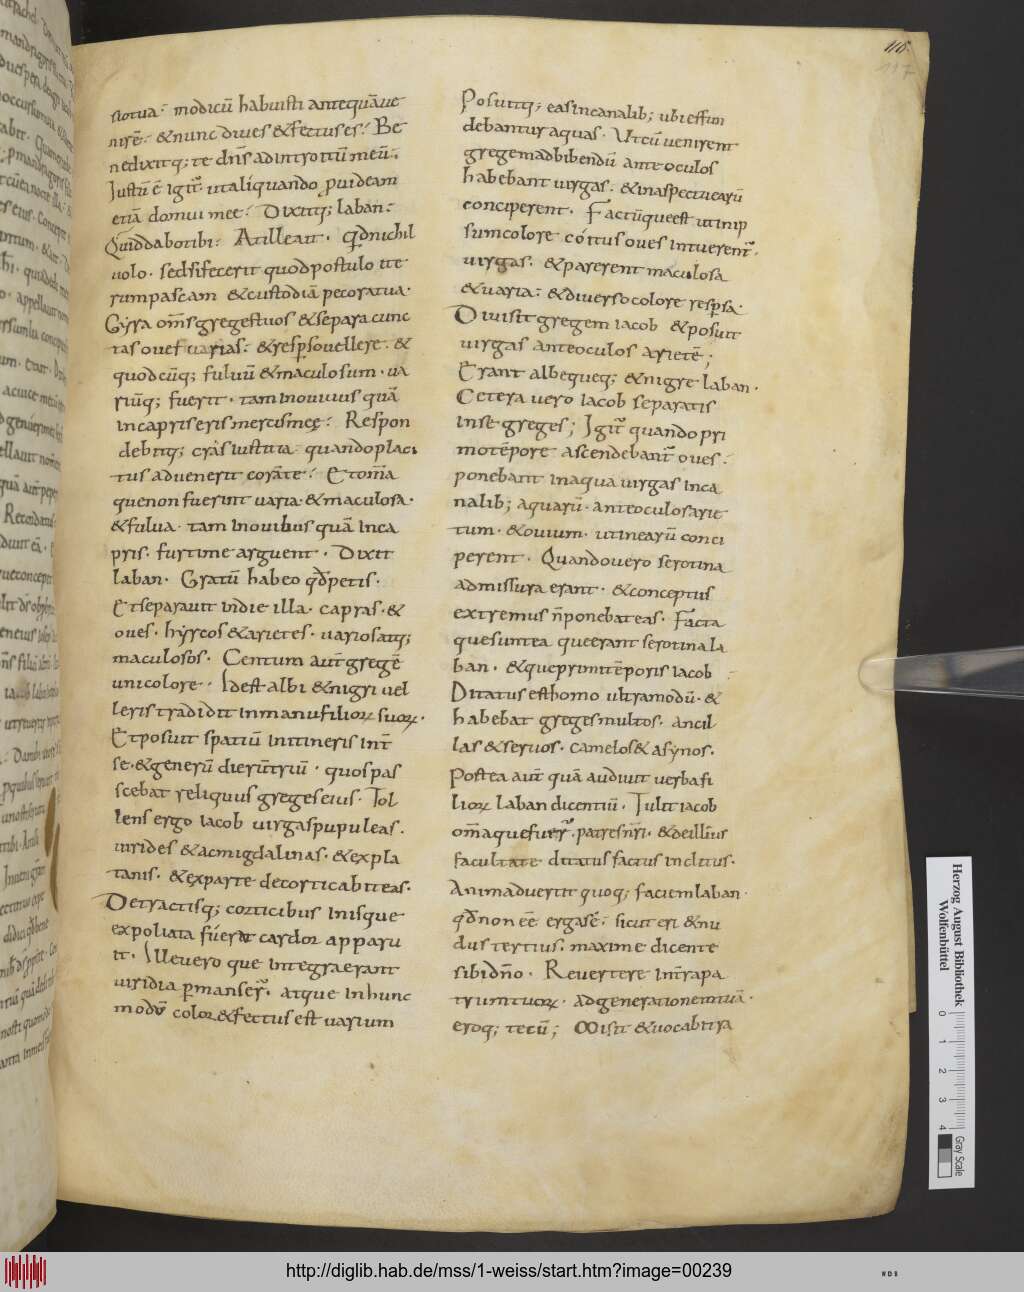 sio tua: modicū habuisti antequā ue
nirē: & nunc diues & fectus es: Be
nedixitq; te dn̄s ad introitū meū:
Iustū ē igit̄ ut alíquando puideam
etiā domui mee: Dixitq; laban:
Quid dabo tibi: At ille ait· qd nichil
uolo· sed si feceris quod postulo ite
rum pascam & custodiā pecora tua·
Gyra om̄s greges tuos & separa cunc
tas oues uarias: & resp̱so uellere· &
quodcūq; fuluū & maculosum· ua
riūq; fuerit· tam in ouiuus quā
in capris eris merces mee: Respon
debitq; cràs iustitia quando placi
tus aduenerit corāte: Et om̄a
que non fuerint uaria & maculosa·
& fulua· tam in ouibus quā in ca
pris· furti me arguent· Dixit
laban· Gratū habeo qd petis·
Et separauit in die illa· capras· &
oues· hyrcos & arietes· uarios atq;
maculosos· Centum aut̄ gregē
unicolore· Id est albi & nigri uel
leris tradidit in manu filioꝝ suoꝝ·
Et posuit spatiū in itineris int̄
se· & generū dierū triū· qui pas
scebat reliquus greges eius· Tol
lens ergo iacob uirgas pupuleas·
uirides & acmigdalinas· & expla
tanis· & ex parte decorticabit eas·
Detractisq; corticibus in is que
expoliata fúerat cardor apparu
it· Ille uero que integra erant
uiridia pmanser̄· atque in hunc
modū color & fectus est uarium
Posuitq; eas in canalib; ubi effun
debantur aquas· Ut cū uenirent
grege m ad bibendū ante oculos
habebant uirgas· & in aspectu earū
conciperent· Factūque est ut in ip
sum colore cóitus oues intuerent̄
uirgas· & parerent maculosa
& uaria: & diuerso colore resp̱sa·
Diuisit gregem iacob & posuit
uirgas ante oculos arietē;
Erant albe queq; & nigre laban·
Cetera uero iacob separatis
in se greges; Igit̄ quando pri
mo tēpore ascendebant̄ oues:
ponebant in aqua uirgas in ca
nalib; aquarū· ante oculos arie
tum· & ouium· ut in earū conci
perent· Quando uero serotina
admissura erant· & conceptus
extremus n̄ ponebat eas· Facta
que sunt ea que erant serotina la
ban· & que primi tēporis iacob
Ditatus est homo ultra modū· &
habebat greges multos· ancil
las & seruos· camelos & asynos·
Postea aut̄ quā audiuit uerba fi
lioꝝ laban dicentiū· Tulit iacob
om̄a que fuer̄· patres nr̄i· & de illius
facultate ditatus factus inclitus·
Animaduertit quoq; faciem laban·
qd non eē erga sē· sicut eri & nu
dus tertius· maxime dicente
sibi dn̄o· Reuertere in t̄ra pa
trum tuoꝝ· ad generationem tuā·
eroq; tecū; Misit & uocabit ra
118·
117
Herzog August Bibliothek
Wolfenbüttel
0 1 2 3 4
Gray Scale
http://diglib.hab.de/mss/1-weiss/start.htm?image=00239